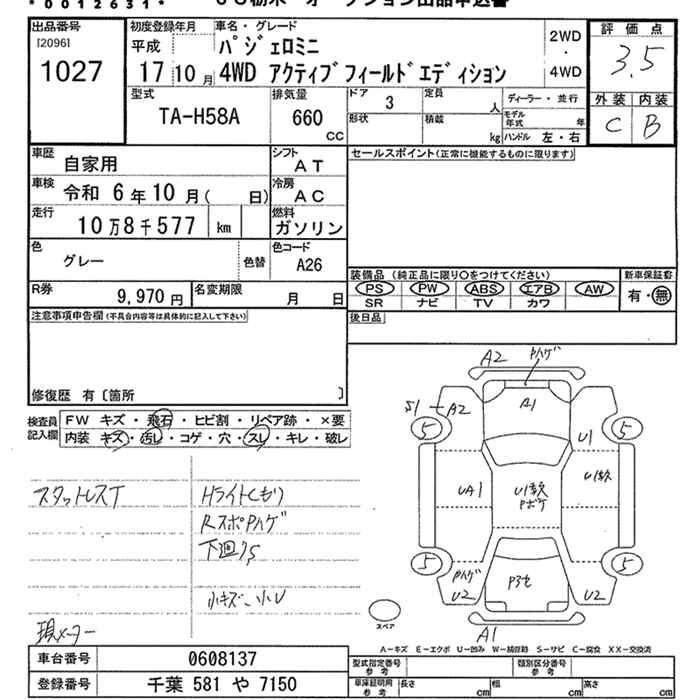 *0012631*
出品番号
[2096]
1027
初度登録年月
平成
17 10 月
車名・グレード
パジェロミニ
4WD アクティブフィールドエディション
2WD
・
4WD
評価点
3.5
外装 内装
C B
型式
TA-H58A
排気量
660
CC
ドア 3
定員 人
形状
積載 kg
ディーラー・並行
モデル年式 年
ハンドル 左・右
車歴 自家用
シフト AT
車検 令和 6年10月( 日)
冷房 AC
走行 10万8千577 km
燃料 ガソリン
色 グレー
色替
色コード A26
R券 9,970円
名変期限 月 日
セールスポイント(正常に機能するものに限ります)
装備品 (純正品に限り○をつけてください)
新車保証書
PS PW ABS エアB AW
有・無
SR ナビ TV カワ
後日品
注意事項申告欄(不具合内容等は具体的に記入して下さい)
修復歴 有〔箇所 〕
検査員記入欄
FW キズ・飛石・ヒビ割・リペア跡・×要
内装 キズ・汚レ・コゲ・穴・スレ・キレ・破レ
スタットレスT
Hライトくもり
RスポPハゲ
下廻りS
小キズ、小U
現メーター
A2 Pハゲ
S1 A2
A1
5 5
U1
UA1
U1多数
Pボケ
U1多数
5 5
Pハゲ
U2
P3セ
U2
A1
スペア
A-キズ E-エクボ U-凹み W-補修跡 S-サビ C-腐食 XX-交換済
車台番号 0608137
登録番号 千葉 581 や 7150
型式指定番号
参考
類別区分番号
参考
車庫証明用
参考
長さ cm 幅 cm 高さ cm